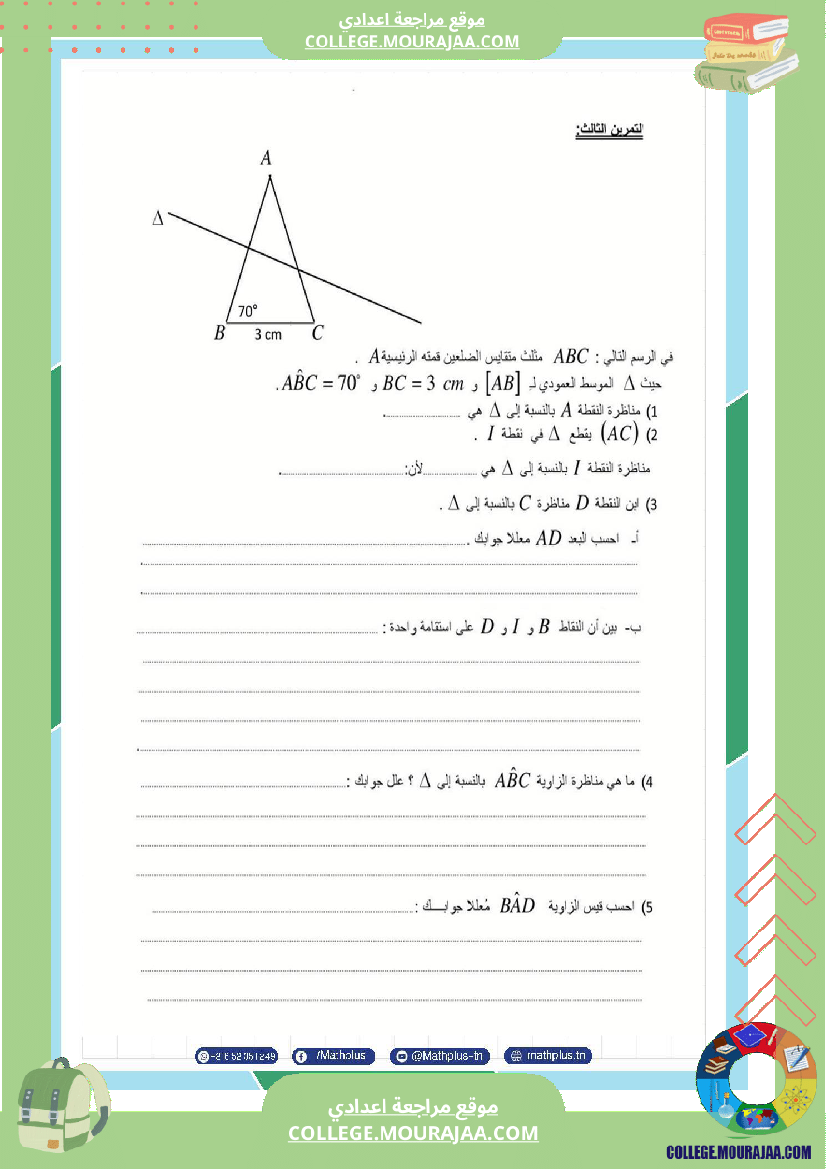 موقع مراجعة اعدادي
COLLEGE.MOURAJAA.COM
التمرين الثالث:
A
Δ
70°
B 3 cm C
في الرسم التالي : ABC مثلث متقايس الضلعين قمته الرئيسية A .
حيث Δ الموسط العمودي لـ [AB] و BC = 3 cm و AB̂C = 70° .
1) مناظرة النقطة A بالنسبة إلى Δ هي ..................
2) (AC) يقطع Δ في نقطة I .
مناظرة النقطة I بالنسبة إلى Δ هي ..................لأن:..................
3) ابن النقطة D مناظرة C بالنسبة إلى Δ .
أ- احسب البعد AD معللا جوابك ...................
ب- بين أن النقاط B و I و D على استقامة واحدة : ..................
4) ما هي مناظرة الزاوية AB̂C بالنسبة إلى Δ ؟ علل جوابك :..................
5) احسب قيس الزاوية BÂD مُعللا جوابـــك :..................
/Mathplus
@Mathplus-tn
mathplus.tn
موقع مراجعة اعدادي
COLLEGE.MOURAJAA.COM
COLLEGE.MOURAJAA.COM